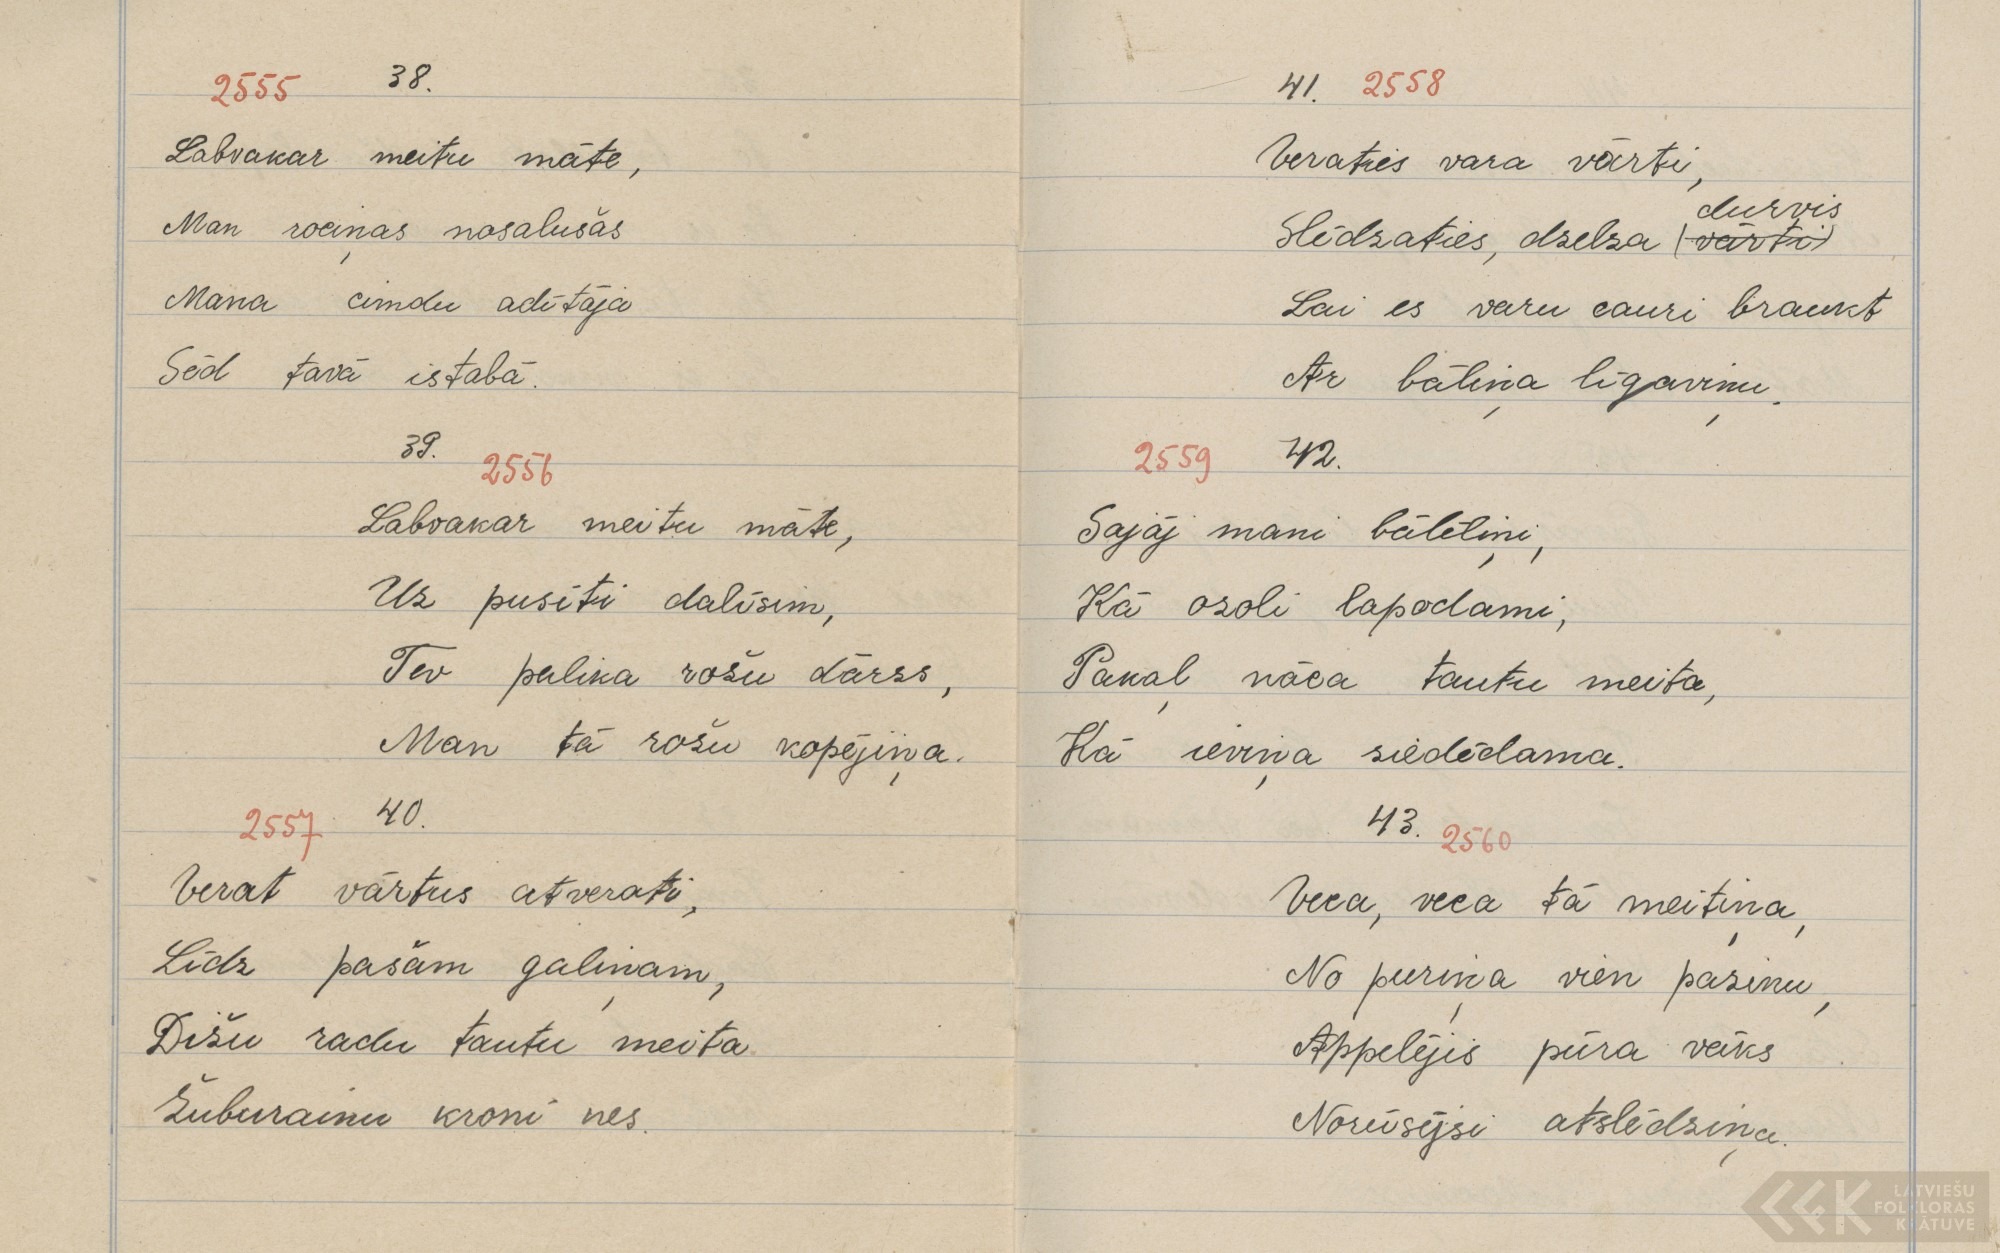 2555 38.
Labvakar meitu māte,
Man rociņas nosalušās
Mana cimdu adītāja
Sēd tavā istabā.
39. 2556
Labvakar meitu māte,
Uz pusīti dalīsim,
Tev palika rožu dārzs,
Man tā rožu kopējiņa.
2557 40.
Verat vārtus atverati,
Līdz pašam galiņam,
Dižu radu tautu meita
Žuburainu kroni nes.
41. 2558
Veraties vara vārti,
durvis
Slēdzaties, dzelza (vārti)
Lai es varu cauri braukt
Ar bāliņa līgaviņu.
2559 42.
Sajāj mani bālēliņi,
Kā ozoli lapodami,
Pakaļ nāca tautu meita,
Kā ieviņa ziedēdama.
43. 2560
Veca, veca tā meitiņa,
No puriņa vien pazinu,
Appelējis pūra vāks
Norūsējsi atslēdziņa.
LATVIEŠU
FOLKLORAS
KRĀTUVE